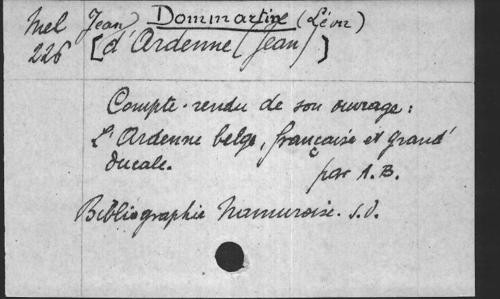 Mel Jean) Dommartin (Léon)
226 [d'Ardenne (Jean)]
Compte-rendu de son ouvrage:
L'Ardenne belge, française et grand'
ducale.
par A.B.
Bibliographie Namuroise. S.D.